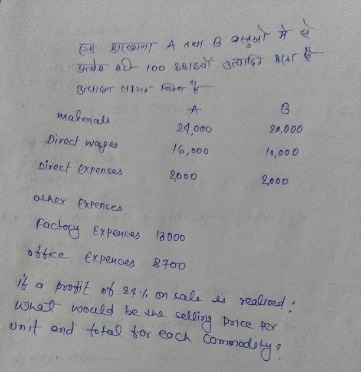 एक कारखाना A तथा B वस्तुओ में से
प्रत्येक की 100 इकाइयाँ उत्पादित करता है
उत्पादन लागत निम्न है
A B
materials 24,000 20,000
Direct wages 16,000 10,000
Direct Expenses 2000 2,000
other Expences
Factory Expences 13000
office Expences 8700
if a profit of 24% on sale is realised:
what would be the selling price per
unit and total for each commodity?